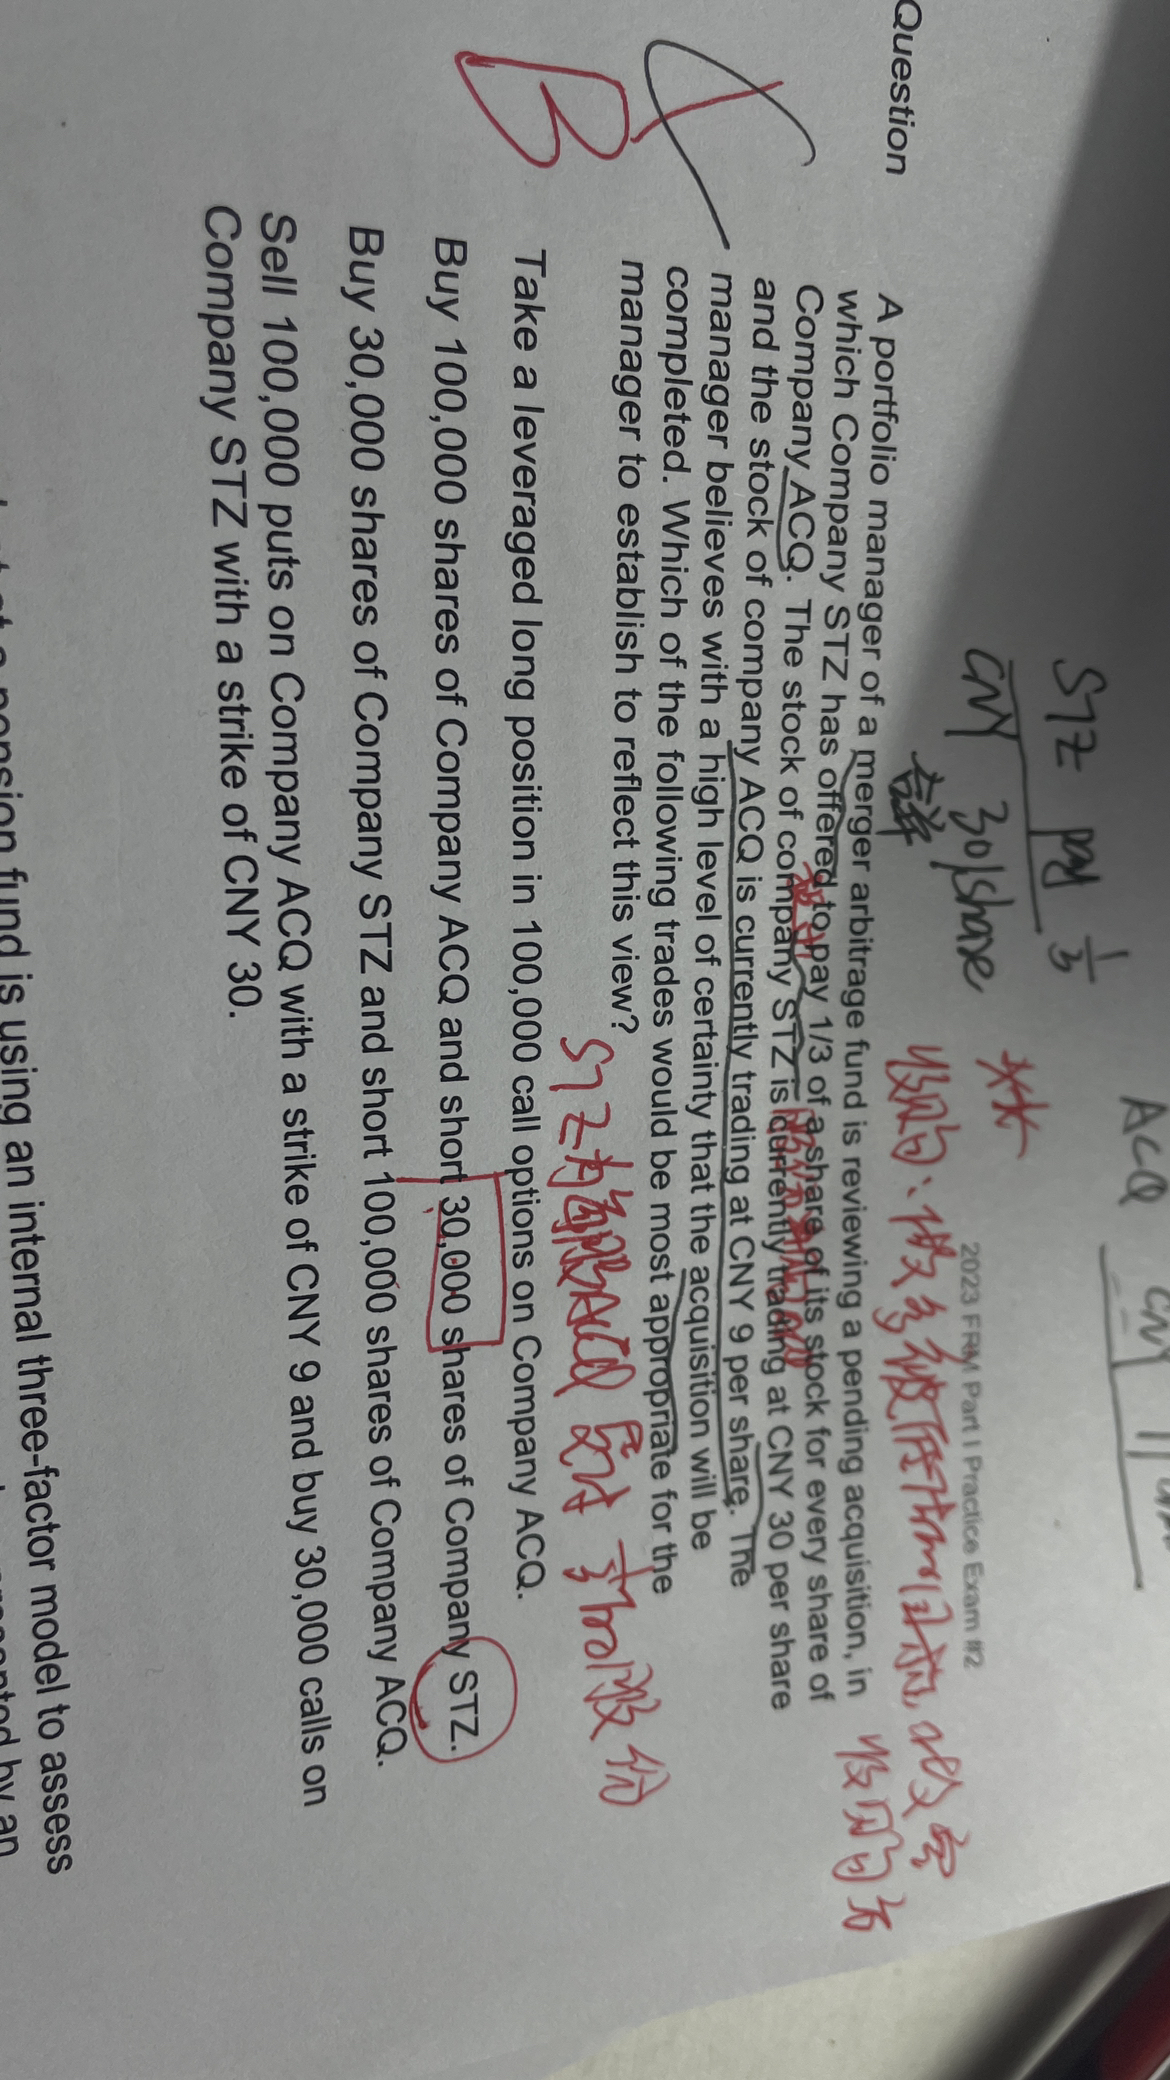 ACQ
STZ pay 1/3
CNY 30/share
2023 FRM Part I Practice Exam #2
Question
A portfolio manager of a merger arbitrage fund is reviewing a pending acquisition, in
which Company STZ has offered to pay 1/3 of a share of its stock for every share of
Company ACQ. The stock of company STZ is currently trading at CNY 30 per share
and the stock of company ACQ is currently trading at CNY 9 per share. The
manager believes with a high level of certainty that the acquisition will be
completed. Which of the following trades would be most appropriate for the
manager to establish to reflect this view?
STZ为每股ACQ 支付 1/3 的股份
Take a leveraged long position in 100,000 call options on Company ACQ.
B
Buy 100,000 shares of Company ACQ and short 30,000 shares of Company STZ.
Buy 30,000 shares of Company STZ and short 100,000 shares of Company ACQ.
Sell 100,000 puts on Company ACQ with a strike of CNY 9 and buy 30,000 calls on
Company STZ with a strike of CNY 30.
fund is using an internal three-factor model to assess